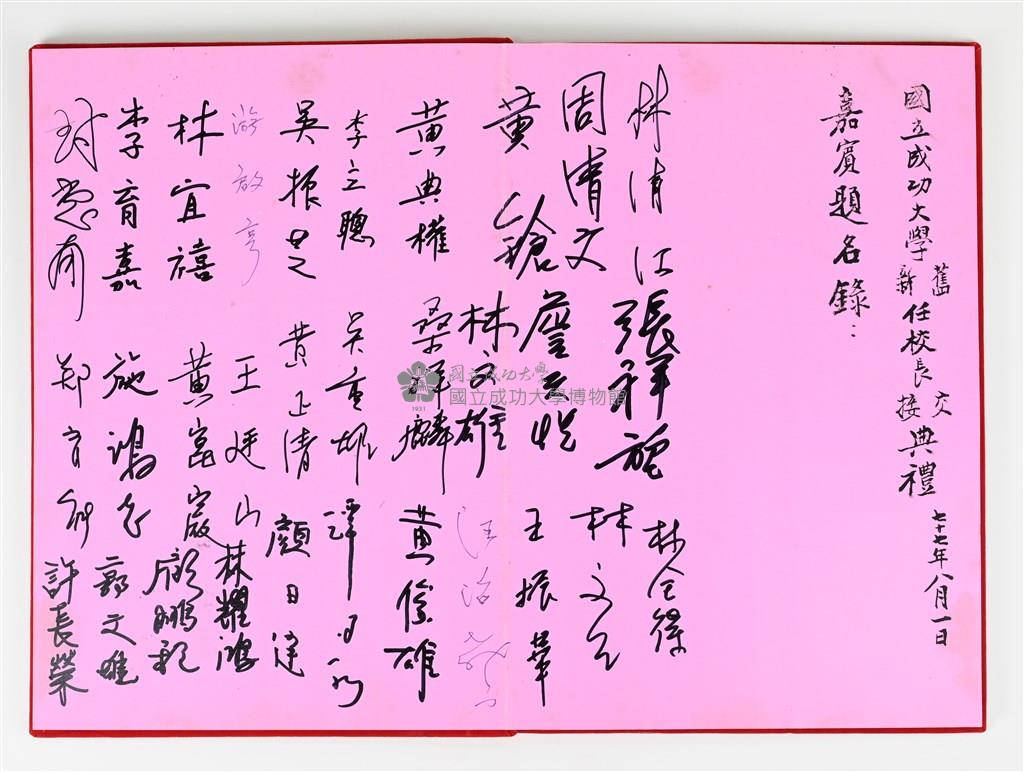 國立成功大學新舊任校長交接典禮 七十七年八月一日
嘉賓題名錄：
林清江
張祥
林金得
周清文
林文
黃鎗
王振華
林文雄
汪治
黃典權
桑祥麟
黃俊雄
李立聰
吳重雄
吳振芝
黃正清
顏日達
游啟亨
王廷山
林耀鴻
林宜禧
黃崑巖
顏鵬
李育嘉
施鴻志
郭文雄
鄭育
許長榮
國立成功大學
國立成功大學博物館
1931